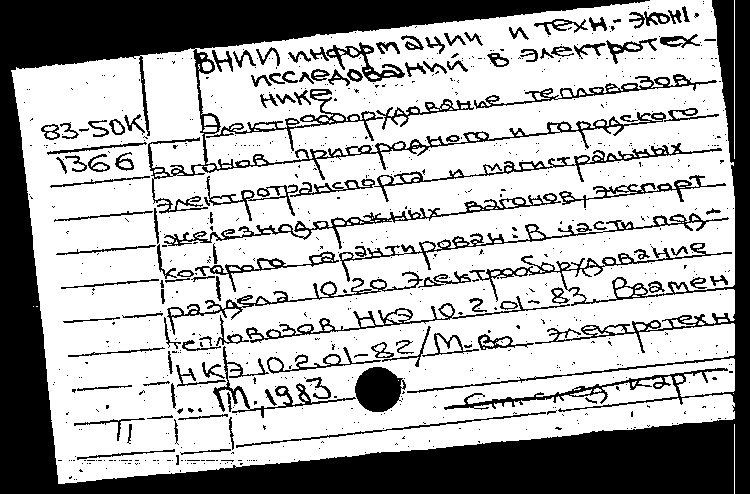 ВНИИ информации и техн.- экон.
исследований в электротех-
нике.
83-50К
Электрооборудование тепловозов,
1366
вагонов пригородного и городского
электротранспорта и магистральных
железнодорожных вагонов, экспорт
которого гарантирован: В части под-
раздела 10.20. Электрооборудование
тепловозов. НКЭ 10.2.01-83. Взамен
НКЭ 10.2.01-82/М-во электротехн
... М., 1983.
См. след. карт.
11